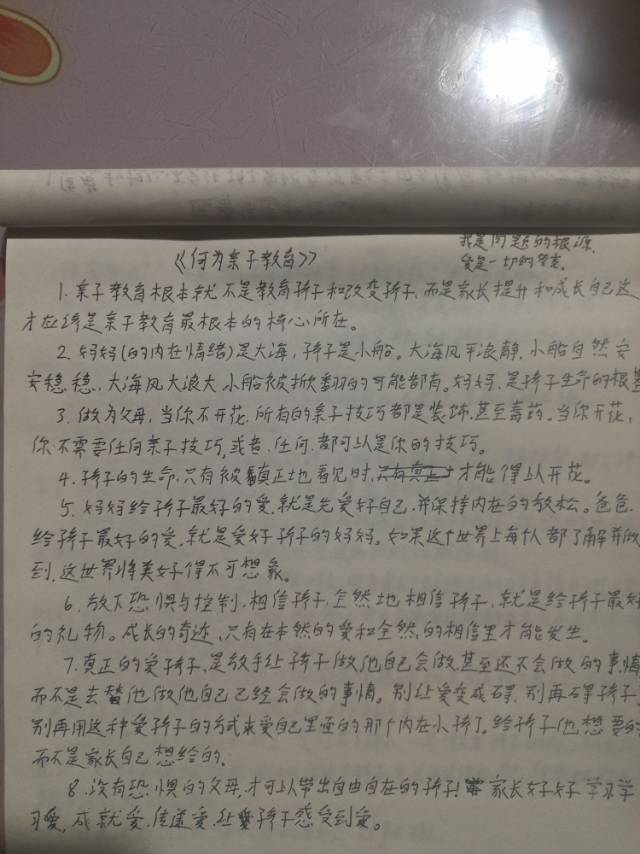 我是问题的根源.
爱是一切的答案.
《何为亲子教育》
1. 亲子教育根本就不是教育孩子和改变孩子, 而是家长提升和成长自己这
才应该是亲子教育最根本的核心所在。
2. 妈妈(的内在情绪)是大海, 孩子是小船。大海风平浪静, 小船自然安
安稳稳. 大海风大浪大, 小船被掀翻的可能都有。妈妈, 是孩子生命的根基
3. 做为父母, 当你不开花, 所有的亲子技巧都是装饰, 甚至毒药。当你开花,
你不需要任何亲子技巧, 或者, 任何都可以是你的技巧。
4. 孩子的生命, 只有被真正地看见时, 只有真正才能得以开花。
5. 妈妈给孩子最好的爱, 就是先爱好自己, 并保持内在的放松。爸爸,
给孩子最好的爱, 就是爱好孩子的妈妈。如果这个世界上每个人都了解并做
到, 这世界将美好得不可想象。
6. 放下恐惧与控制, 相信孩子, 全然地相信孩子, 就是给孩子最好
的礼物。成长的奇迹, 只有在本然的爱和全然的相信里才能发生。
7. 真正的爱孩子, 是放手让孩子做他自己会做甚至还不会做的事情
而不是去替他做他自己已经会做的事情。别让爱变成碍, 别再碍孩子,
别再用这种爱孩子的方式来爱自己里面的那个内在小孩了。给孩子他想要的
而不是家长自己想给的.
8. 没有恐惧的父母, 才可以带出自由自在的孩子! 家长好好学习学
习爱, 成就爱, 传递爱, 让孩子感受到爱。